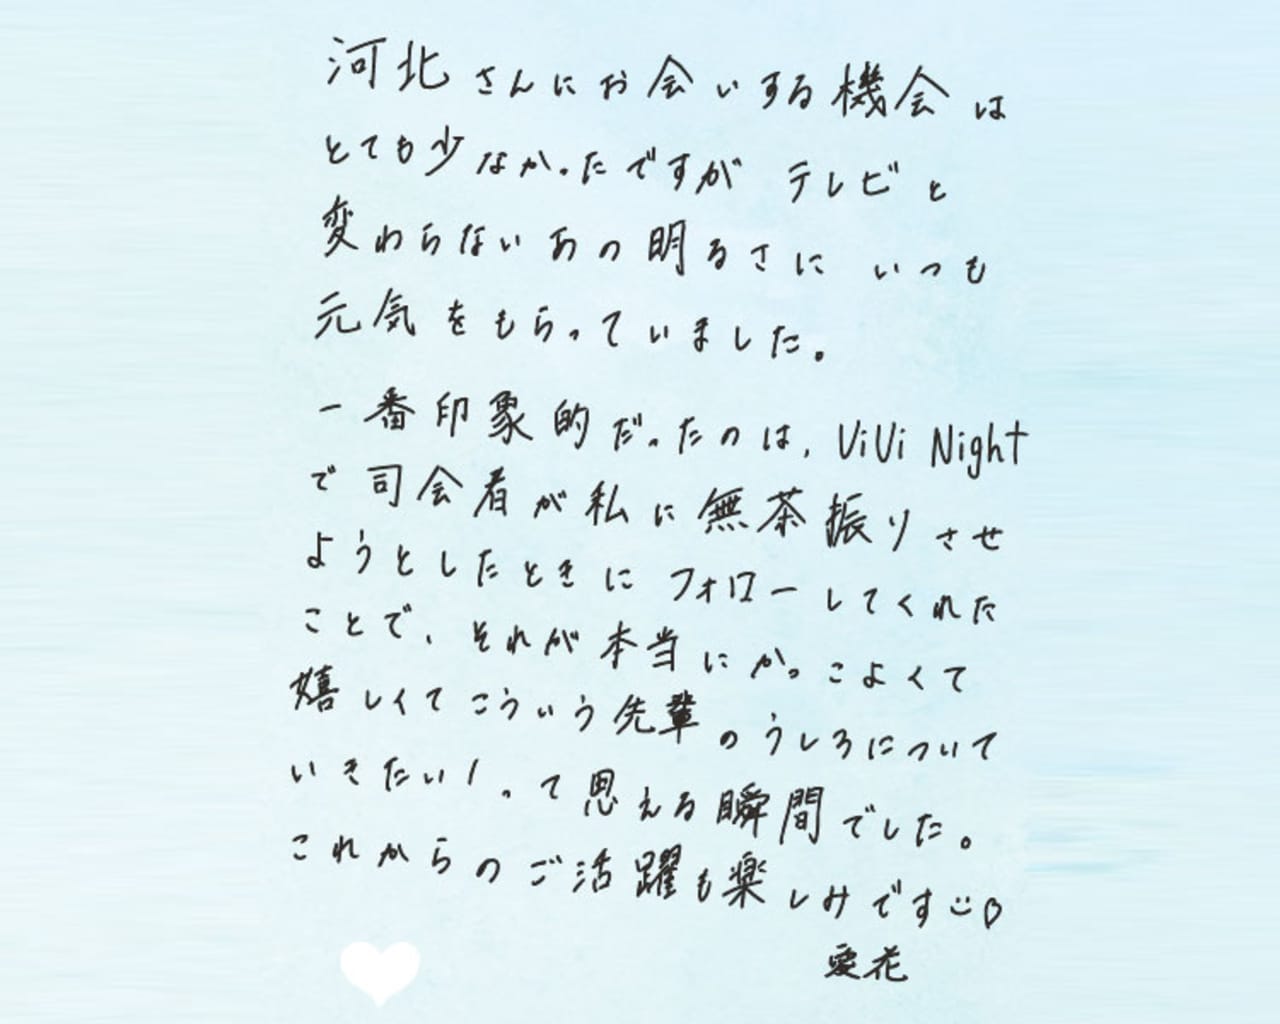 河北さんにお会いする機会は
とても少なかったですが テレビと
変わらないあの明るさに いつも
元気をもらっていました。
一番印象的だったのは、ViVi Night
で司会者が私に無茶振りさせ
ようとしたときに フォローしてくれた
ことで、それが本当にかっこよくて
嬉しくてこういう先輩のうしろについて
いきたい!って思える瞬間でした。
これからのご活躍も楽しみです
愛花